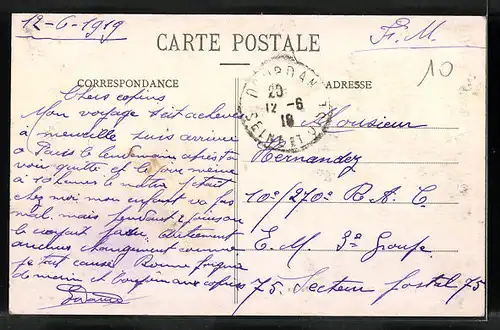 12-6-1919
F. M.
CARTE POSTALE
CORRESPONDANCE
ADRESSE
10
DOURDAN
20
12 -6
19
SEINE ET OISE
Chers copins
Mon voyage s'est achevé
à merveille suis arrivé
à Paris le lendemain après t'on
voir quitté et le jour même
à 10 heures le matin j'étais
chez moi mon enfant va pas
mal. mais pendant
le autrement
aucun changement comme
je tout cause. Bonne poigne
de main et aux copins
Monsieur
Hernandez
10e/270e R A C
E. M. 3e Groupe
75. Secteur postal 75.